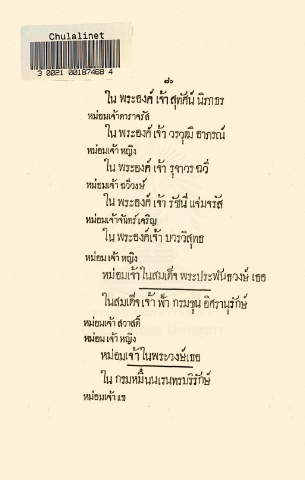 Chulalinet
3 0021 00187468 4
๘๐
ใน พระองค์ เจ้า สุทัศน์ นิภาธร
หม่อมเจ้าดาราจรัส
ใน พระองค์ เจ้า วรวุฒิ อาภรณ์
หม่อมเจ้า หญิง
ใน พระองค์ เจ้า รุจาวร ฉวี
หม่อมเจ้า ฉวีวงษ์
ใน พระองค์ เจ้า รัชนี แจ่มจรัส
หม่อมเจ้าจันทร์ เจริญ
ใน พระองค์เจ้า บวรวิสุทธ
หม่อมเจ้า หญิง
หม่อมเจ้า ในสมเด็จ พระประพันธวงษ์ เธอ
ในสมเด็จ เจ้า ฟ้า กรมขุน อิศรานุรักษ์
หม่อมเจ้า สวาสดิ์
หม่อมเจ้า หญิง
หม่อมเจ้าในพระวงษ์เธอ
ใน กรมหมื่นนเรนทรบริรักษ์
หม่อมเจ้า แข